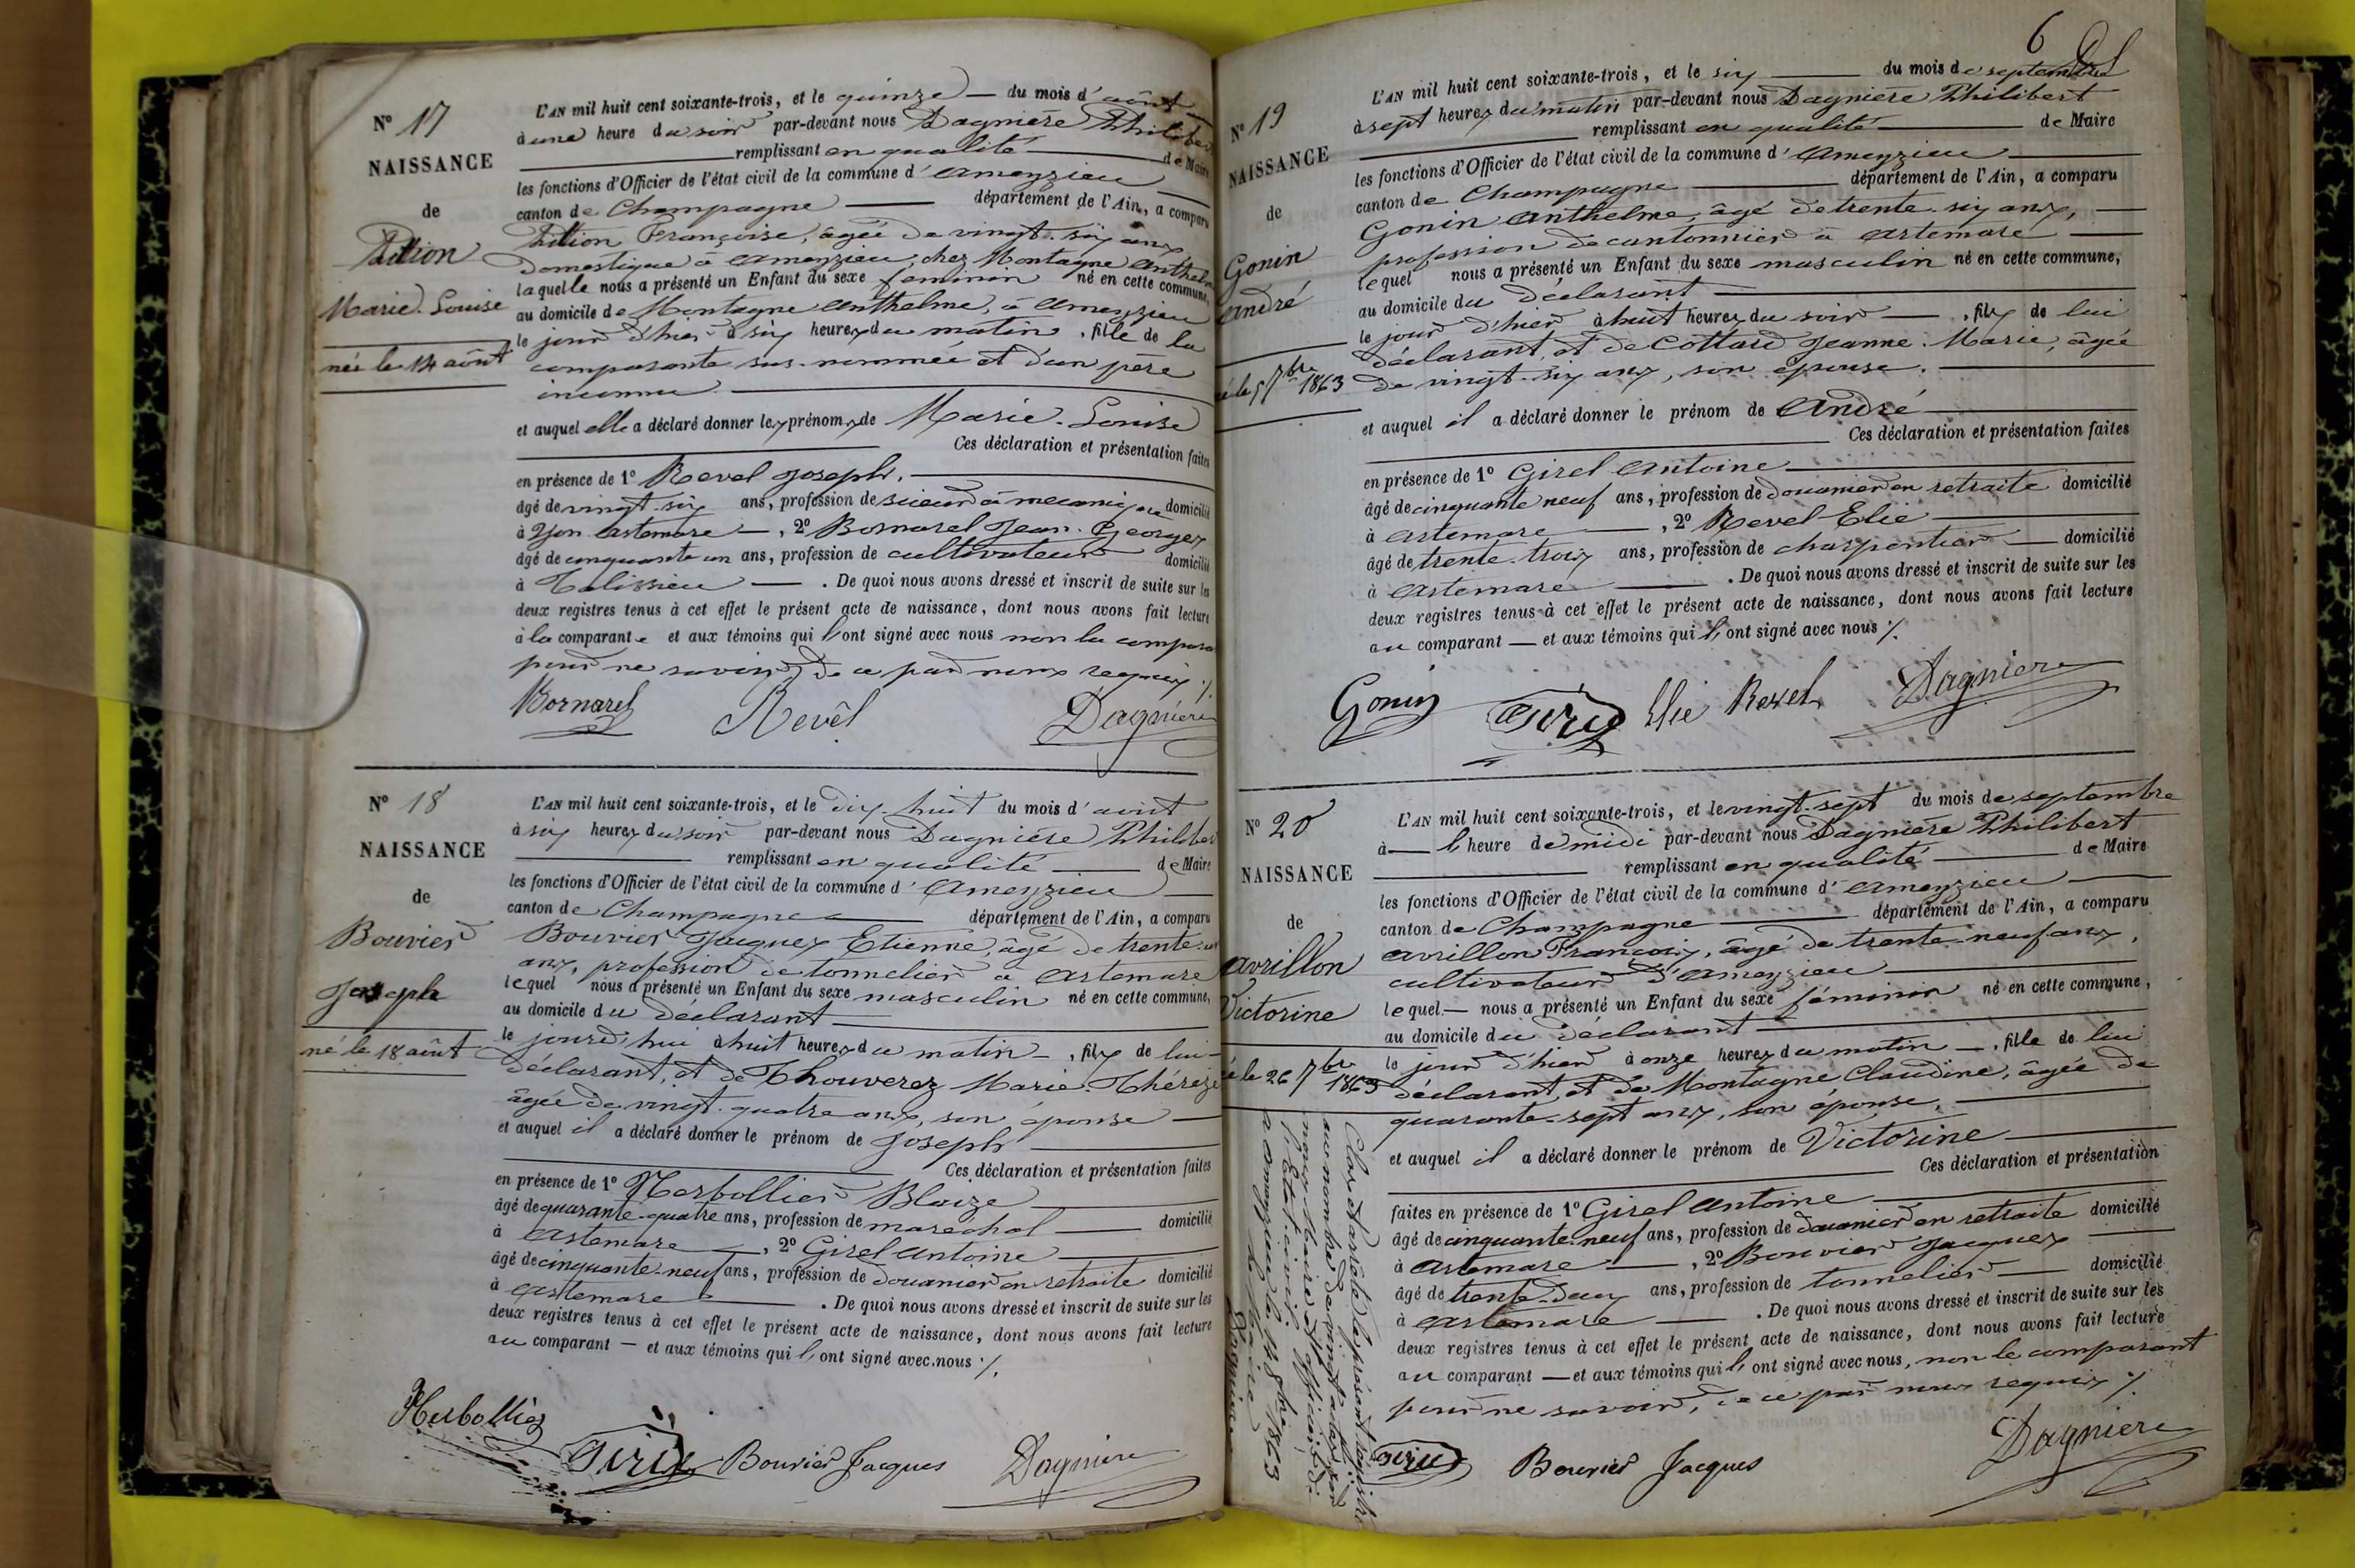 N° 17
NAISSANCE
de
Marie Louise
née le 14 août
L'AN mil huit cent soixante-trois, et le quinze — du mois d'août
à une heure du soir par-devant nous Dagnière Philibert
remplissant en qualité de Maire
les fonctions d'Officier de l'état civil de la commune d'Ameyzieu
canton de Champagne — département de l'Ain, a comparu
Françoise, âgée de vingt-six ans,
domestique à Ameyzieu, chez Montagne Anthelme
laquelle nous a présenté un Enfant du sexe feminin né en cette commune,
au domicile de Montagne Anthelme, à Ameyzieu
le jour d'hier à six heures du matin, fille de la
comparante sus-nommée et d'un père
inconnu
et auquel elle a déclaré donner les prénoms de Marie-Louise
Ces déclaration et présentation faites
en présence de 1° Revel Joseph,
âgé de vingt-six ans, profession de scieur à mecanique domicilié
à Yon Artemare —, 2° Bornarel Jean-Georges
âgé de cinquante un ans, profession de cultivateur domicilié
à Talissieu — . De quoi nous avons dressé et inscrit de suite sur les
deux registres tenus à cet effet le présent acte de naissance, dont nous avons fait lecture
à la comparante et aux témoins qui l'ont signé avec nous non la comparante
pour ne savoir, de ce par nous requis ./.
Bornarel Revêl Dagnière
N° 18
NAISSANCE
de
Bouvier
Joseph
né le 18 août
L'AN mil huit cent soixante-trois, et le dix-huit du mois d'août
à six heures du soir par-devant nous Dagnière Philibert
remplissant en qualité — de Maire
les fonctions d'Officier de l'état civil de la commune d'Ameyzieu
canton de Champagne — département de l'Ain, a comparu
Bouvier Jacques Etienne, âgé de trente-un
ans, profession de tonnelier à Artemare
lequel nous a présenté un Enfant du sexe masculin né en cette commune,
au domicile du déclarant
le jourd'hui à huit heures du matin —, fils de lui-
déclarant, et de Thouverez Marie-Thérèze
âgée de vingt-quatre ans, son épouse
et auquel il a déclaré donner le prénom de Joseph
Ces déclaration et présentation faites
en présence de 1° Herbollier Blaize
âgé de quarante-quatre ans, profession de maréchal — domicilié
à Artemare —, 2° Girel Antoine
âgé de cinquante-neuf ans, profession de douanier en retraite domicilié
à Artemare — . De quoi nous avons dressé et inscrit de suite sur les
deux registres tenus à cet effet le présent acte de naissance, dont nous avons fait lecture
au comparant — et aux témoins qui l'ont signé avec nous ./.
Herbollier Bouvier Jacques Dagnière
6
N° 19
NAISSANCE
de
Gonin
André
né le 5 7bre 1863
L'AN mil huit cent soixante-trois, et le six — du mois de septembre
à sept heures du matin par-devant nous Dagnière Philibert
remplissant en qualité — de Maire
les fonctions d'Officier de l'état civil de la commune d'Ameyzieu
canton de Champagne — département de l'Ain, a comparu
Gonin Anthelme, âgé de trente-six ans, —
profession de cantonnier à Artemare —
lequel nous a présenté un Enfant du sexe masculin né en cette commune,
au domicile du déclarant
le jour d'hier à huit heures du soir —, fils de lui
déclarant, et de Cottard Jeanne-Marie, âgée
de vingt-six ans, son épouse.
et auquel il a déclaré donner le prénom de André
Ces déclaration et présentation faites
en présence de 1° Girel Antoine
âgé de cinquante neuf ans, profession de douanier en retraite domicilié
à Artemare —, 2° Revel Elie
âgé de trente-trois ans, profession de charpentier — domicilié
à Artemare — . De quoi nous avons dressé et inscrit de suite sur les
deux registres tenus à cet effet le présent acte de naissance, dont nous avons fait lecture
au comparant — et aux témoins qui l'ont signé avec nous ./.
Gonin Elie Revel Dagnière
N° 20
NAISSANCE
de
Avrillon
Victorine
née le 26 7bre 1863
L'AN mil huit cent soixante-trois, et le vingt-sept du mois de septembre
à — l'heure de midi par-devant nous Dagnière Philibert
remplissant en qualité — de Maire
les fonctions d'Officier de l'état civil de la commune d'Ameyzieu
canton de Champagne — département de l'Ain, a comparu
Avrillon François, âgé de trente-neuf ans,
cultivateur d'Ameyzieu
lequel — nous a présenté un Enfant du sexe féminin né en cette commune,
au domicile du déclarant
le jour d'hier à onze heures du matin —, fille de lui
déclarant, et de Montagne Claudine, âgée de
quarante-sept ans, son épouse,
et auquel il a déclaré donner le prénom de Victorine
Ces déclaration et présentation
faites en présence de 1° Girel Antoine
âgé de cinquante-neuf ans, profession de douanier en retraite domicilié
à Artemare —, 2° Bouvier Jacques
âgé de trente-deux ans, profession de tonnelier — domicilié
à Artemare — . De quoi nous avons dressé et inscrit de suite sur les
deux registres tenus à cet effet le présent acte de naissance, dont nous avons fait lecture
au comparant — et aux témoins qui l'ont signé avec nous, non le comparant
pour ne savoir, de ce par nous requis ./.
Bouvier Jacques Dagnière
Clos et arrêté le présent registre
au nombre de vingt actes par
nous Maire et officier de
l'Etat civil
Dagnière